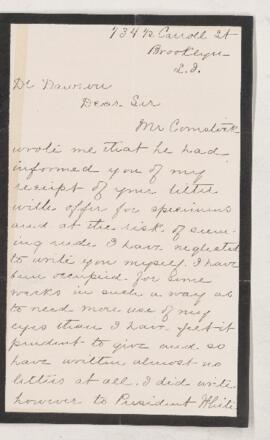 734 B. Carroll St
Brooklyn
L.I.
Dr Dawson
Dear Sir
Mr Comstock
wrote me that he had
informed you of my
receipt of your letter
with offer for specimens
and at the risk of seem-
ing rude I have neglected
to write you myself. I have
been occupied for some
weeks in such a way as
to need more use of my
eyes than I have felt it
prudent to give and so
have written almost no
letters at all. I did write
however to President White